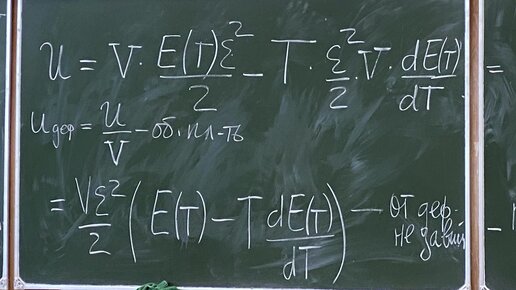 U = V · E(T)ε²/2 − T · ε²/2 · V · dE(T)/dT =
u деф = U/V − об. пл-ть
= Vε²/2 (E(T) − T dE(T)/dT) — от деф.
не давл